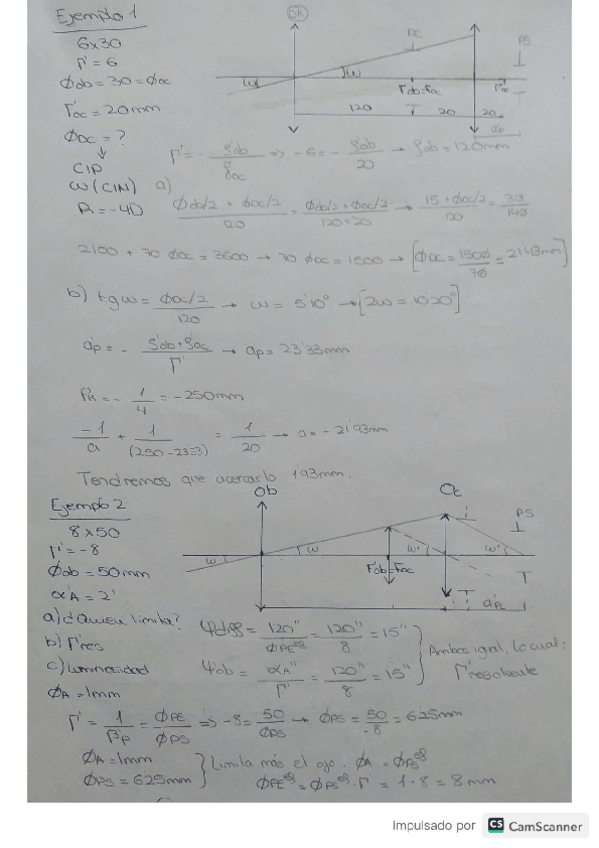 Ejemplo 1
6x30
Γ' = 6
φob = 30 = φoc
f'oc = 20mm
φDC = ?
↓
CIP
ω (CIN)
R = -4D
DA
DC
PS
ω
ω
F'ob=Foc
F'oc
120
20
20
Γ' = - f'ob/f'oc => -6 = - f'ob/20 → f'ob = 120mm
a) φob/2 + φoc/2 / 120 = φob/2 + φoc/2 / 120+20 → 15 + φDC/2 / 120 = 30/140
2100 + 70 φDC = 3600 → 70 φDC = 1500 → [φDC = 1500/70 = 21'43mm]
b) tgω = φDC/2 / 120 → ω = 5'10° → [2ω = 10'20°]
a'p = - f'ob+f'oc / Γ' → a'p = 23'33mm
PR = - 1/4 = -250mm
-1/a + 1/(250-23'33) = 1/20 → a = -21'93mm
Tendremos que acercarlo 1'93mm.
Ejemplo 2
8x50
Γ' = -8
φob = 50mm
αA = 2'
a) ¿Quien limita?
b) Γ'res
c) luminosidad
φA = 1mm
Ob
Oc
PS
ω
ω
ω'
ω'
F'ob=Foc
a'pc
φdiff = 120''/φPEeg = 120''/8 = 15''
φob = αA''/Γ' = 120''/8 = 15''
Ambos igual, lo cual:
Γ'resolvente
Γ' = 1/β'p = φPE/φPS => -8 = 50/φPS → φPS = 50/-8 = 6'25mm
φA = 1mm
φPS = 6'25mm
Limita más el ojo. φA = φPSeg
φPEeg = φPSeg · Γ' = 1 · 8 = 8mm
Impulsado por CS CamScanner